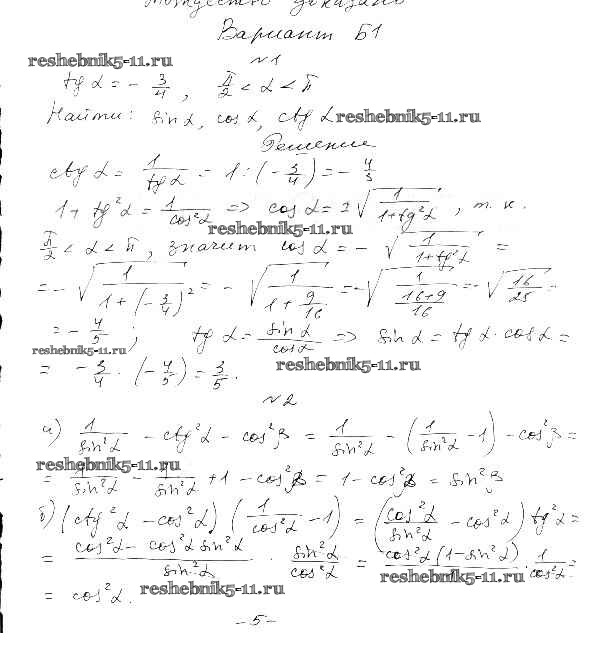 тождество доказано
Вариант Б1
№1
reshebnik5-11.ru
tg α = - 3/4 , π/2 < α < π
Найти: sin α, cos α, ctg α reshebnik5-11.ru
Решение
ctg α = 1/tg α = 1 : (- 3/4) = - 4/3
1 + tg²α = 1/cos²α => cos α = ± √(1/(1+tg²α)) , т.к.
reshebnik5-11.ru
π/2 < α < π, значит cos α = - √(1/(1+tg²α)) =
= - √(1/(1+(-3/4)²)) = - √(1/(1+9/16)) = - √(1/((16+9)/16)) = - √(16/25) =
= - 4/5 ; tg α = sin α/cos α => sin α = tg α · cos α =
reshebnik5-11.ru reshebnik5-11.ru
= - 3/4 · (- 4/5) = 3/5.
№2
а) 1/sin²α - ctg²α - cos²β = 1/sin²α - (1/sin²α - 1) - cos²β =
reshebnik5-11.ru
= 1/sin²α - 1/sin²α + 1 - cos²β = 1 - cos²β = sin²β
б) (ctg²α - cos²α) (1/cos²α - 1) = (cos²α/sin²α - cos²α) tg²α =
= (cos²α - cos²α sin²α)/sin²α · sin²α/cos²α = cos²α(1-sin²α) · 1/cos²α =
reshebnik5-11.ru reshebnik5-11.ru
= cos²α.
-5-